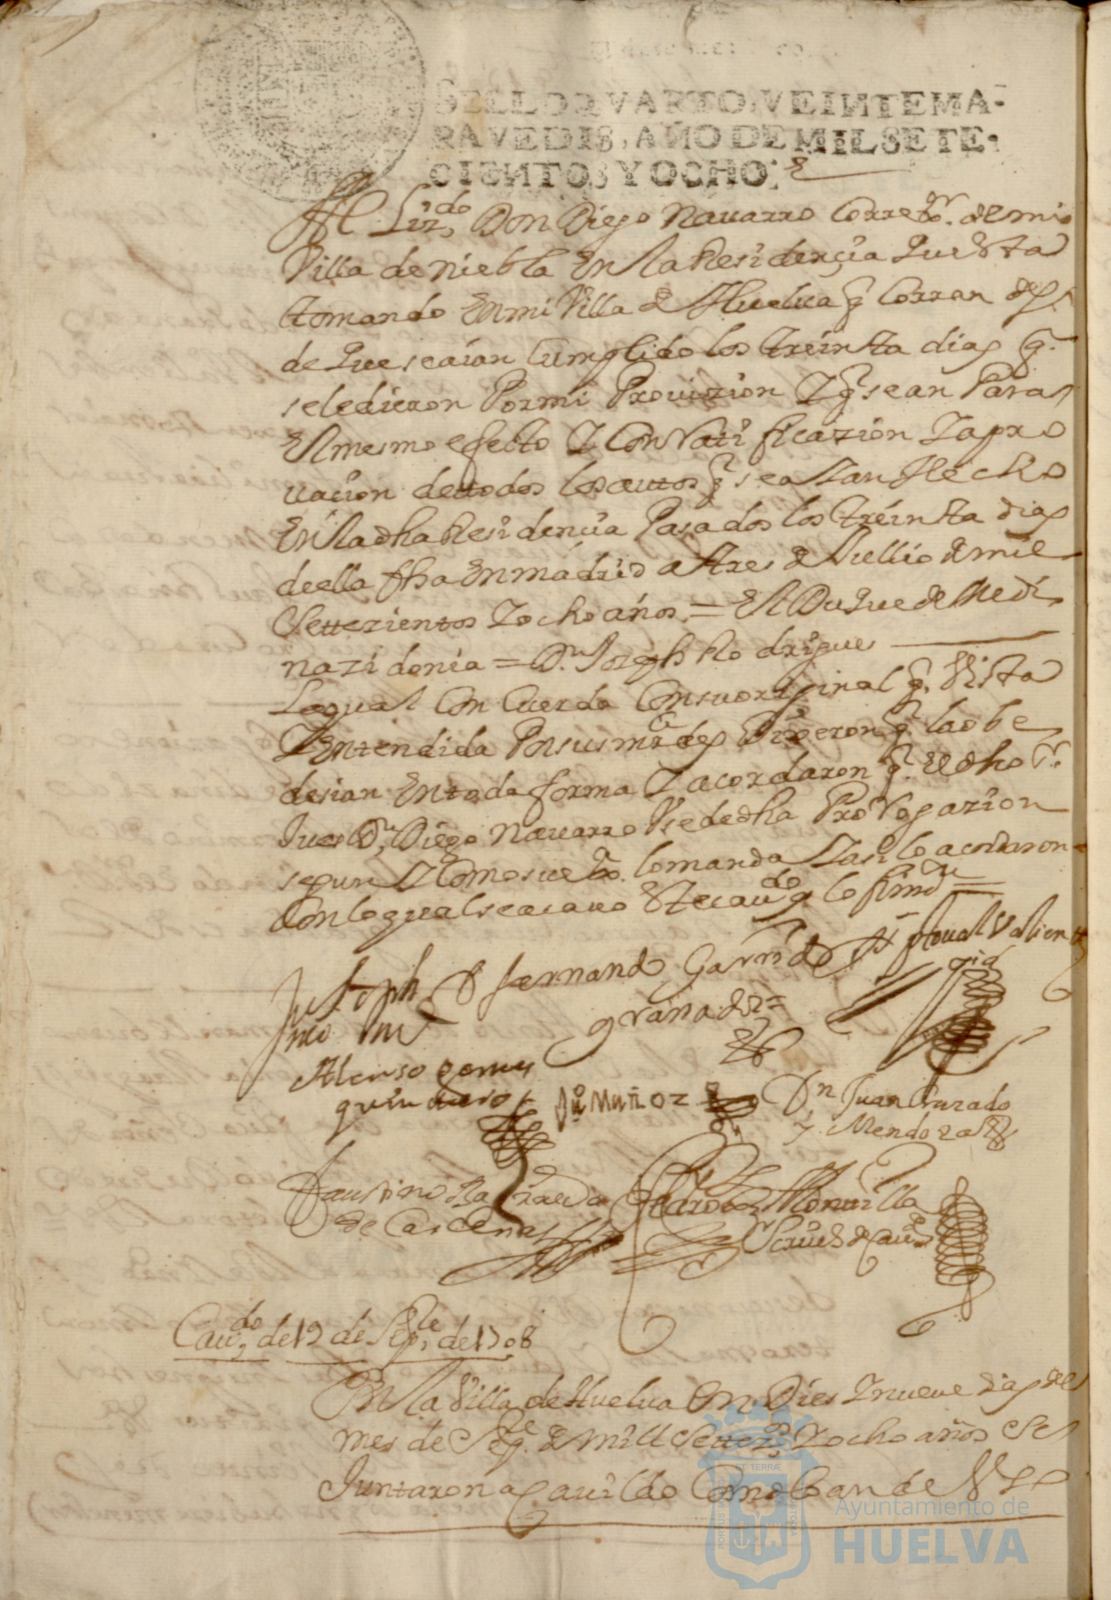 SELLO QVARTO, VEINTE MA-
RAVEDIS, AÑO DE MIL SETE-
CIENTOS Y OCHO.
Al Lizdo Don Diego Navarro Corregor. de mi
Villa de Niebla En la Residençia que esta
tomando En mi Villa de Huelva q corran desp.
de que seaian Cumplido los treinta dias q.
se le dieron Por mi Provizion Y q sean Para
El mesmo efecto Y Con Ratificazion Y apro
uacion de ttodos los auttos q se aian Hecho
En la dha Residencia Pasados los treinta dias
de ella fha En madrid a tres de Jullio de mil
Settezientos Y ocho años = El Duque de Medi
nazidonia = Dn Joseph Rodrigues
La qual Con Cuerda Con su original q. Vista
Y Entendida Por sus mrdes Dixeron q. la obe
desian En toda forma Y acordaron q. el dho Sr.
Jues Dn Diego Navarro Use de dha ProRogazion
segun Y Como su Exa. lo manda Y asi lo acordaron
Con lo qual se acavo Este cavdo y lo firmn =
Justoph
Dn fernando Garrido
granado
Xptoual Valien
Alonso gomes
quintero
Ju Muñoz
Dn Juan Quzado
y Mendoza
Faustino
de Cardenas
Monuilla
Scriud de Cavo
Cavdo de 19 de Sepre de 1708
En la Villa de Huelua En Dies Y nueve dias del
mes de Sepe. de mill Settezs Y ocho años Se
Juntaron a Cauildo Como Lan de V S S
Ayuntamiento de
HUELVA